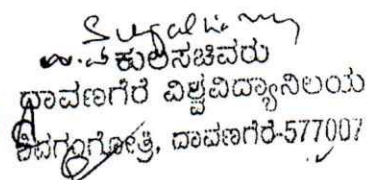 ಕುಲಸಚಿವರು
ದಾವಣಗೆರೆ ವಿಶ್ವವಿದ್ಯಾನಿಲಯ
ಶಿವಗಂಗೋತ್ರಿ, ದಾವಣಗೆರೆ-577007